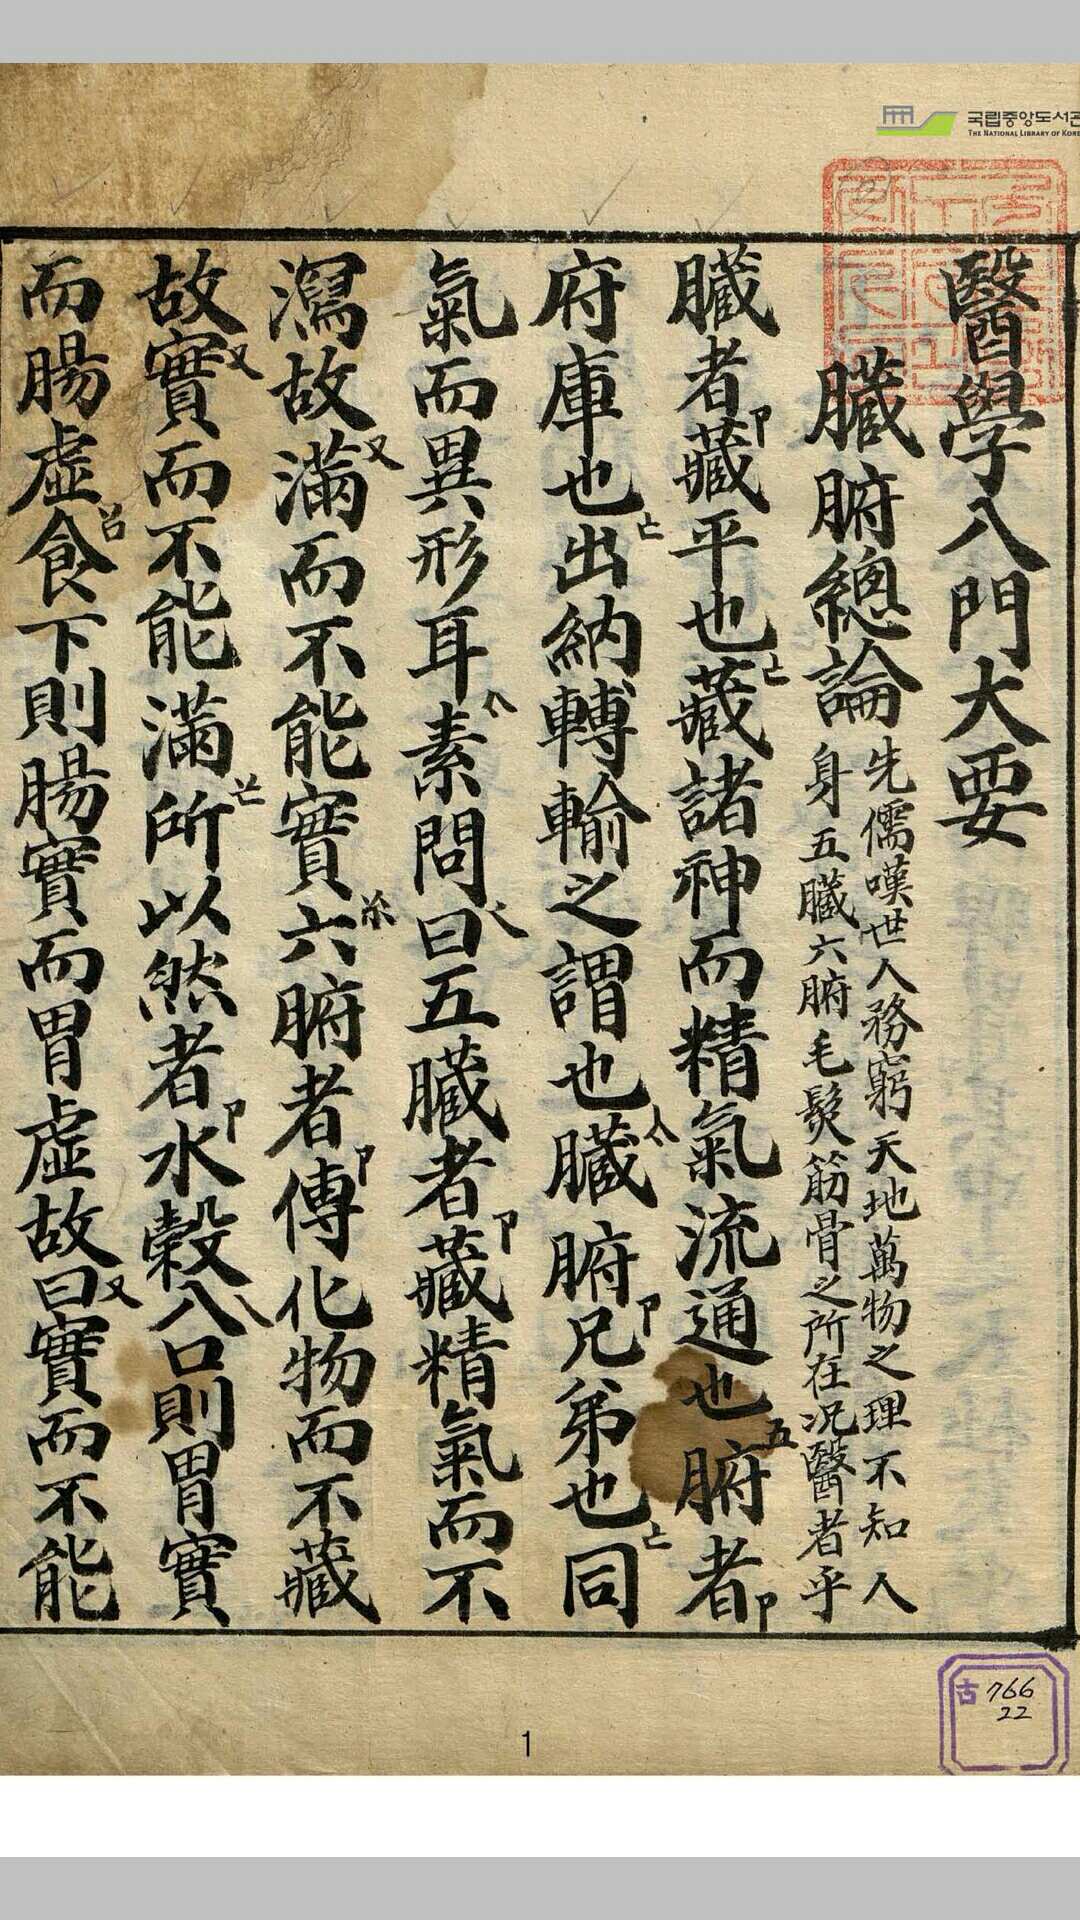 국립중앙도서관
THE NATIONAL LIBRARY OF KORE
醫學入門大要
臟腑總論
先儒嘆世人務窮天地萬物之理不知人
身五臟六腑毛髮筋骨之所在况醫者乎
臟者卩藏平也亡藏諸神而精氣流通也五腑者卩
府庫也亡出納轉輸之謂也人臟腑兄卩弟也亡同
氣而異形耳素問曰五臟者卩藏精氣而不
瀉故滿又而不能實六腑者傳卩化物而不藏
故實又而不能滿所以然者水卩穀入口則胃實
而腸虛食下則腸實而胃虛故曰又實而不能
古 766
22
1